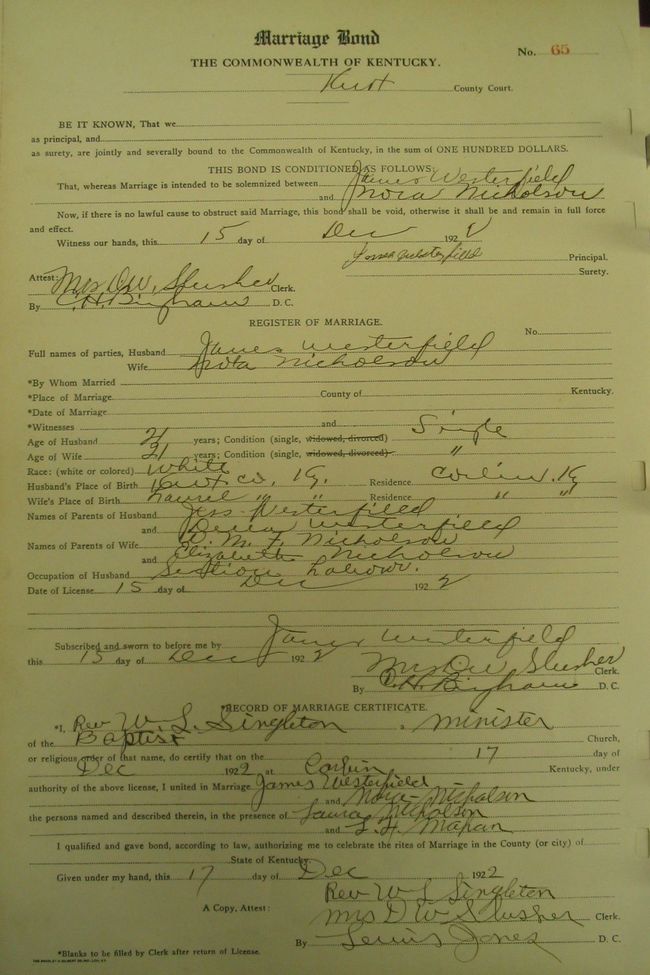 Marriage Bond
No. 65
THE COMMONWEALTH OF KENTUCKY.
Knox County Court.
BE IT KNOWN, That we
as principal, and
as surety, are jointly and severally bound to the Commonwealth of Kentucky, in the sum of ONE HUNDRED DOLLARS.
THIS BOND IS CONDITIONED AS FOLLOWS:
That, whereas Marriage is intended to be solemnized between James Westerfield
and Nora Nicholson
Now, if there is no lawful cause to obstruct said Marriage, this bond shall be void, otherwise it shall be and remain in full force
and effect.
Witness our hands, this 15 day of Dec 1922
James Westerfield Principal.
Surety.
Attest: Mrs D.W. Slusher Clerk.
By C.H. Bingham D. C.
REGISTER OF MARRIAGE.
No.
Full names of parties, Husband James Westerfield
Wife Nora Nicholson
*By Whom Married
*Place of Marriage County of Kentucky.
*Date of Marriage
*Witnesses and
Age of Husband 21 years; Condition (single, widowed, divorced) Single
Age of Wife 21 years; Condition (single, widowed, divorced) "
Race: (white or colored) White
Husband's Place of Birth Knox co, Ky. Residence Corbin, Ky
Wife's Place of Birth Laurel " " Residence " "
Names of Parents of Husband Jess Westerfield
and Westerfield
Names of Parents of Wife M. F. Nicholson
and Elizabeth Nicholson
Occupation of Husband Section Labour.
Date of License 15 day of Dec 1922
Subscribed and sworn to before me by James Westerfield
this 15 day of Dec 1922 Mrs D.W. Slusher Clerk.
By C.H. Bingham D. C.
*RECORD OF MARRIAGE CERTIFICATE.
*I, Rev W. L. Singleton a minister
of the Baptist Church,
or religious order of that name, do certify that on the 17 day of
Dec 1922 at Corbin Kentucky, under
authority of the above license, I united in Marriage James Westerfield
and Nora Nicholson
the persons named and described therein, in the presence of Laura Nicholson
and L. H. Mahan
I qualified and gave bond, according to law, authorizing me to celebrate the rites of Marriage in the County (or city) of
State of Kentucky.
Given under my hand, this 17 day of Dec 1922
Rev W L Singleton
A Copy, Attest: Mrs D W Slusher Clerk.
By Lewis Jones D. C.
*Blanks to be filled by Clerk after return of License.